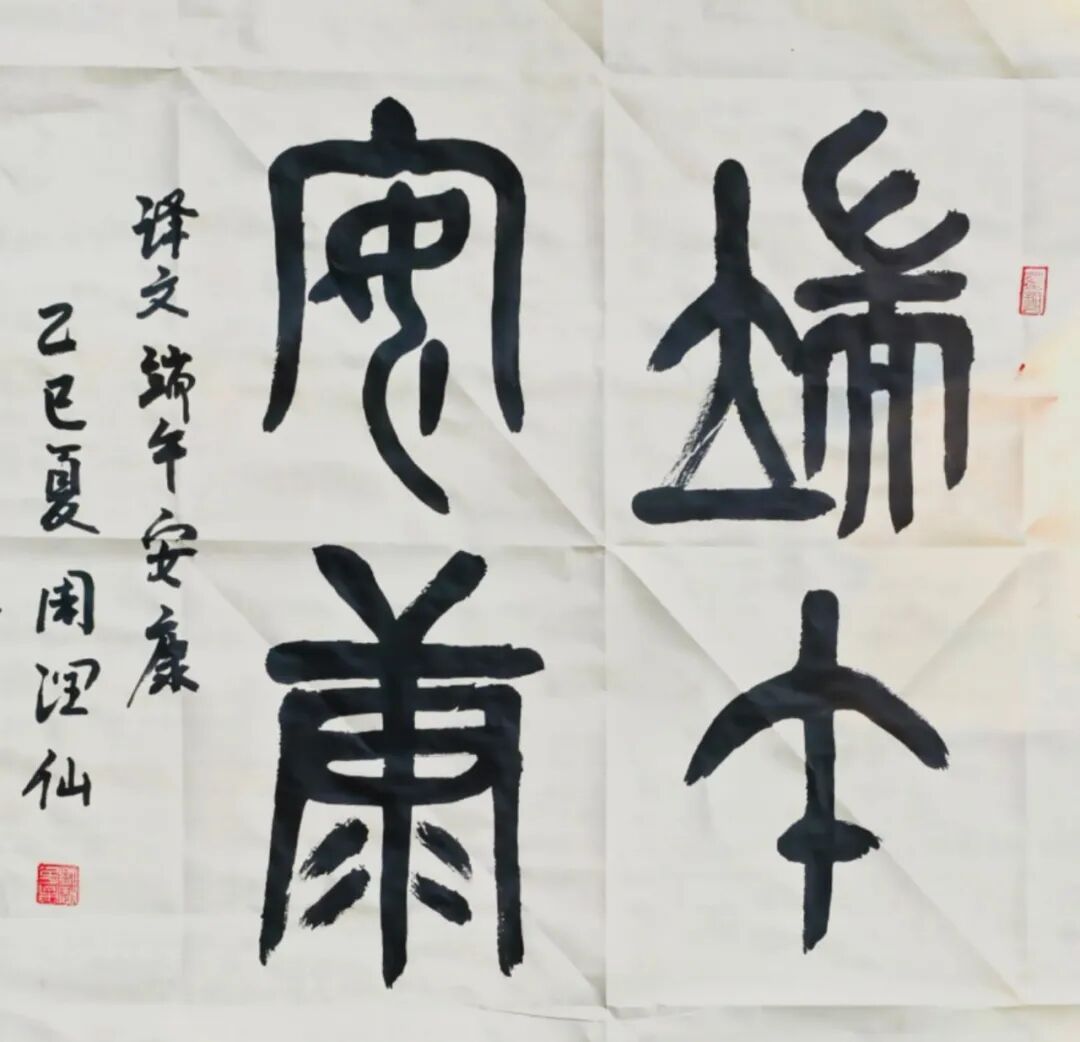 端午
安康
译文端午安康
乙巳夏 周润仙